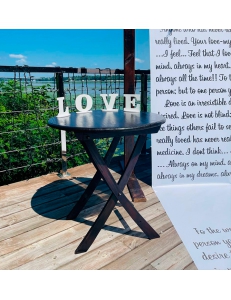 LOVE
Anyone who has never
really lived. Your love-my
...I feel... Feel that I lo
mind, always in my heart.
always all the time!! To t
person you because
Love is an irresistible d
desired. Love is not blind
the things others fail to se
really loved has never
medicine, I dont think...
....Always on my mind, a
always in my dreams, alwa
To the wo
person yo
desire